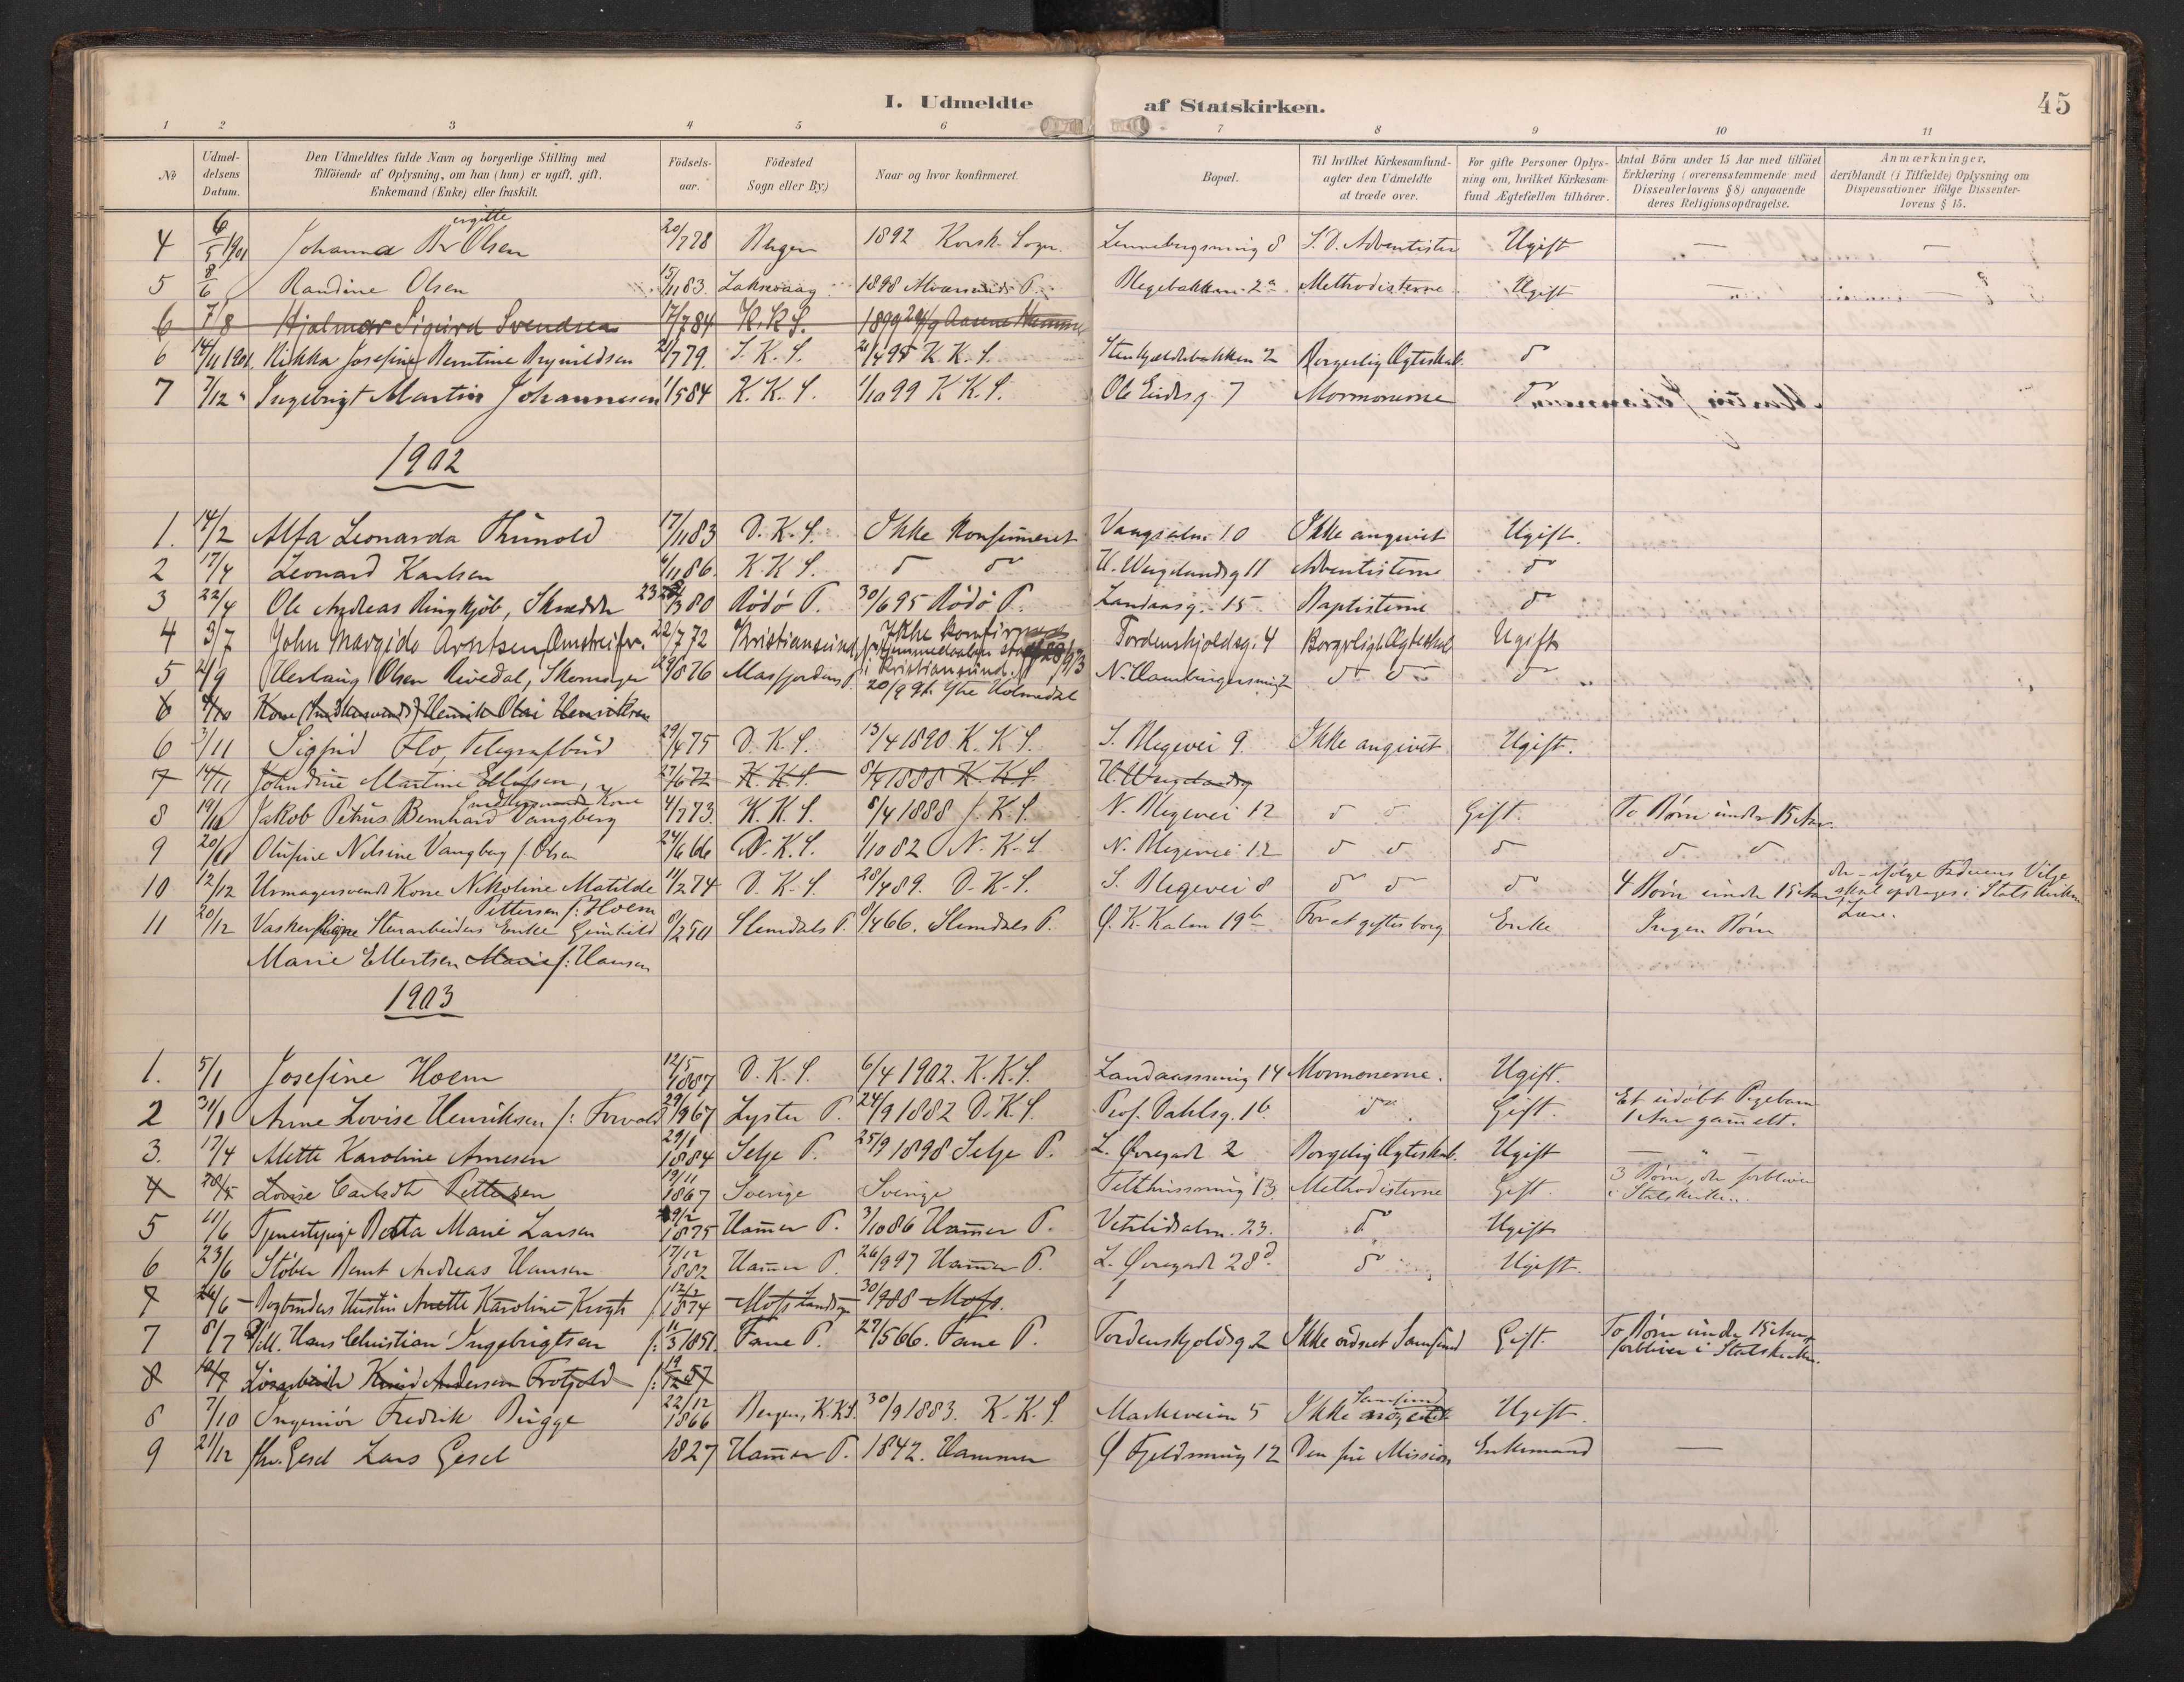 I. Udmeldte af Statskirken. 45
1 2 3 4 5 6 7 8 9 10 11
№ Udmeldelsens Datum. Den Udmeldtes fulde Navn og borgerlige Stilling med Tilføiende af Oplysning, om han (hun) er ugift, gift, Enkemand (Enke) eller fraskilt. Födselsaar. Födested Sogn eller By.) Naar og hvor konfirmeret. Bopæl. Til hvilket Kirkesamfundagter den Udmeldte at træde over. For gifte Personer Oplysning om, hvilket Kirkesamfund Ægtefællen tilhörer. Antal Börn under 15 Aar med tilføiet Erklæring (overensstemmende med Dissenterlovens §8) angaaende deres Religionsopdragelse. Anmærkninger, deriblandt (i Tilfælde) Oplysning om Dispensationer ifölge Dissenterlovens § 15.
4 6/5 1901 Johanna Olsen 20/7 78 Bergen 1892 Korsk. Sogn 8 S. D. Adventister Ugift — —
5 8/6 Randine Olsen 15/11 83. Laksevaag 1898 P. Blegebakken 2a Methodisterne Ugift —
6 7/8 Hjalmar Sigurd Svendsen 17/7 84 K. K. S. 1899
6 14/11 1901. Rikka Josefine Berntine Brynildsen 21/7 79. S. K. S. K. K. S. Stenkjeldebakken 2 Borgerlig Ægteskab. do
7 7/12 " Ingebrigt Martin Johannesen 1/5 84 K. K. S. 1/10 99 K. K. S. Ole 7 Mormonerne do
1902
1. 14/2 Alfa Leonarda Thunold 17/11 83 D. K. S. Ikke konfirmeret 10 Ikke angivet Ugift.
2 17/4 Leonard Karlsen 6/11 86. K. K. S. do do H. Wergelandsg 11 Adventisterne do
3 22/4 Ole Andreas Ringkjöb, Skrædder 80 Rödö P. 30/6 95 Rödö P. Landaasg. 15 Baptisterne do
4 3/7 John Margido Arntsen, 22/7 72 Kristianssund, Ikke konfirmeret i Kristianssund. Tordenskjoldsg. 4 Borgerligt Ægteskab Ugift
5 2/9 Olsen Rivedal, Skomager 29/8 76 Masfjorden P. 20/9 91. Ytre Holmedal N. Hamburgersmug 2 do do do
6 4/10 Kone Henrik Olai Henriksen
6 3/11 Sigfrid Flo, Telegrafbud 29/4 75 D. K. S. 13/4 1890. K. K. S. S. Blegevei 9. Ikke angivet Ugift.
7 14/11 Johndine Martine Ellefsen, 27/6 72 K. K. S. 8/4 1888 K. K. S. H. Wergelandsg
8 Jakob Petrus Bernhard Vangberg 4/7 73. K. K. S. 8/4 1888 J. K. S. N. Blegevei 12 do do Gift. To Börn under 15 Aar.
9 Olufine Nilsine Vangberg f. Olsen 24/6 66 N. K. S. 1/10 82 N. K. S. N. Blegevei 12 do do do do do
10 12/12 Urmagersvends Kone Nikoline Matilde Pettersen f: Hoem 11/2 74 D. K. S. 28/4 89. D. K. S. S. Blegevei 8 do do do 4 Börn under 15 Aar, der ifölge Faderens Vilje skal opdrages i Statskirkens Lære.
11 20/12 Stenarbeiders Enke Gunhild 9/2 50 Slemdals P. 9/4 66. Slemdals P. Ø. K. Kalm 19b For at giftes borg Enke Ingen Börn
Marie Ellertsen Marie f: Hansen
1903
1. 5/1 Josefine Hoem 12/5 1887 D. K. S. 6/4 1902. K. K. S. Landaassmug 14 Mormonerne. Ugift.
2 31/1 Anne Lovise Henriksen f: 67 Lyster P. 24/9 1882 D. K. S. Prof. Dahlsg. 16 do Gift. Et udöbt Pigebarn 1 Aar gammelt.
3. 17/4 Mette Karoline Arnesen 29/1 1884 Selje P. 25/9 1898 Selje P. L. Øvregade 2 Borgerlig Ægteskab. Ugift — " —
4 28/5 Lovise Pettersen 19/11 1867 Sverige Sverige 13. Methodisterne Gift. 3 Börn, der forbliver i Statskirken.
5 11/6 Tjenestepige Berta Marie Larsen 1875 Hammer P. 3/10 86 Hammer P. Vetrlidsalm. 23. do Ugift
6 23/6 Stöber Bernt Andreas Hansen 17/12 1882 Hammer P. 26/9 97 Hammer P. L. Øvregade 28d. do Ugift.
7 26/6 — Bogbinders Hustru Anette Karoline Krogh f: 12/2 1874 Moss Landsogn 30/9 88 Moss.
7 8/7 Hans Christian Ingebrigtsen f: 11/3 1851. Fane P. 27/5 66. Fane P. Tordenskjoldsg 2 Ikke ordnet Samfund Gift. To Börn under 15 Aar, forbliver i Statskirken.
8 10/7 Lösarbeider Knud Andersen f: 19/12 57
8 7/10 Ingeniör Fredrik Brügge 22/12 1866 Bergen, K. K. S. 30/9 1883. K. K. S. Markeveien 5 Ikke Samfund Ugift.
9 21/12 Lars Gesel 1827 Hammer P. 1842. Hammer Ø Fjeldsmug 12 Den fri Mission Enkemand —